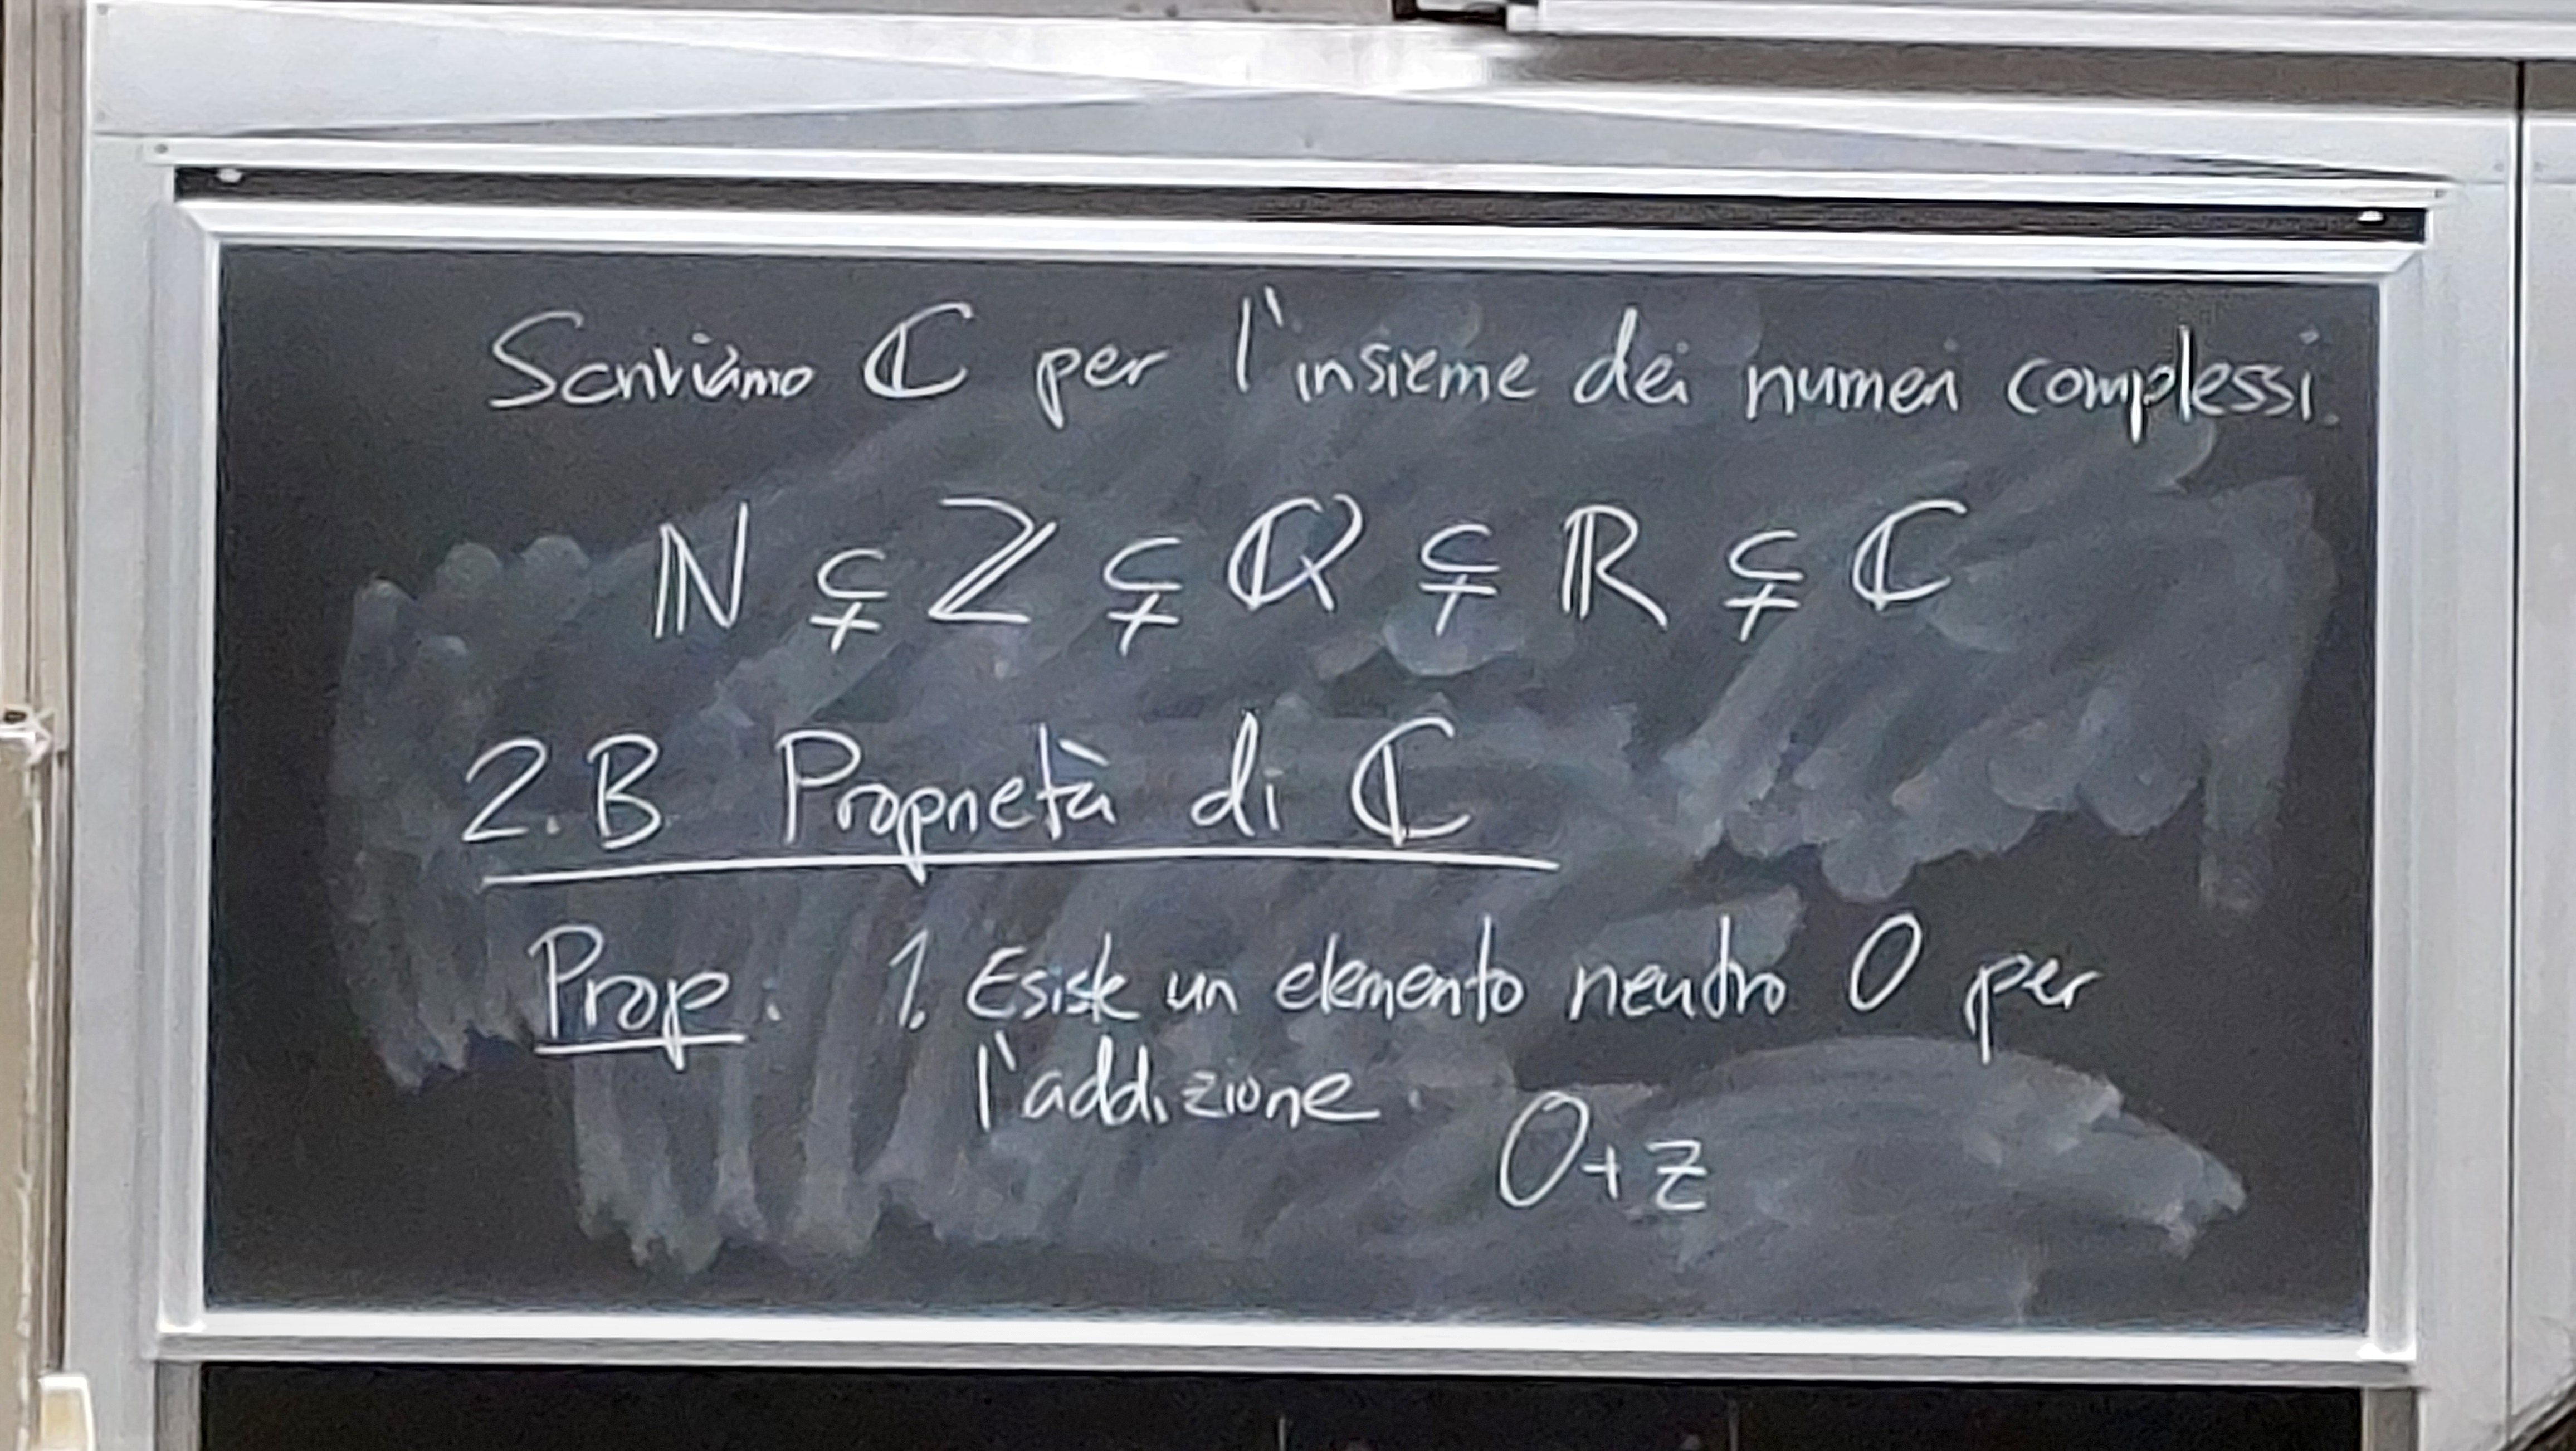 Scriviamo ℂ per l'insieme dei numeri complessi.
ℕ ⊊ ℤ ⊊ ℚ ⊊ ℝ ⊊ ℂ
2.B Proprietà di ℂ
Prop. 1. Esiste un elemento neutro 0 per
l'addizione.
0+z